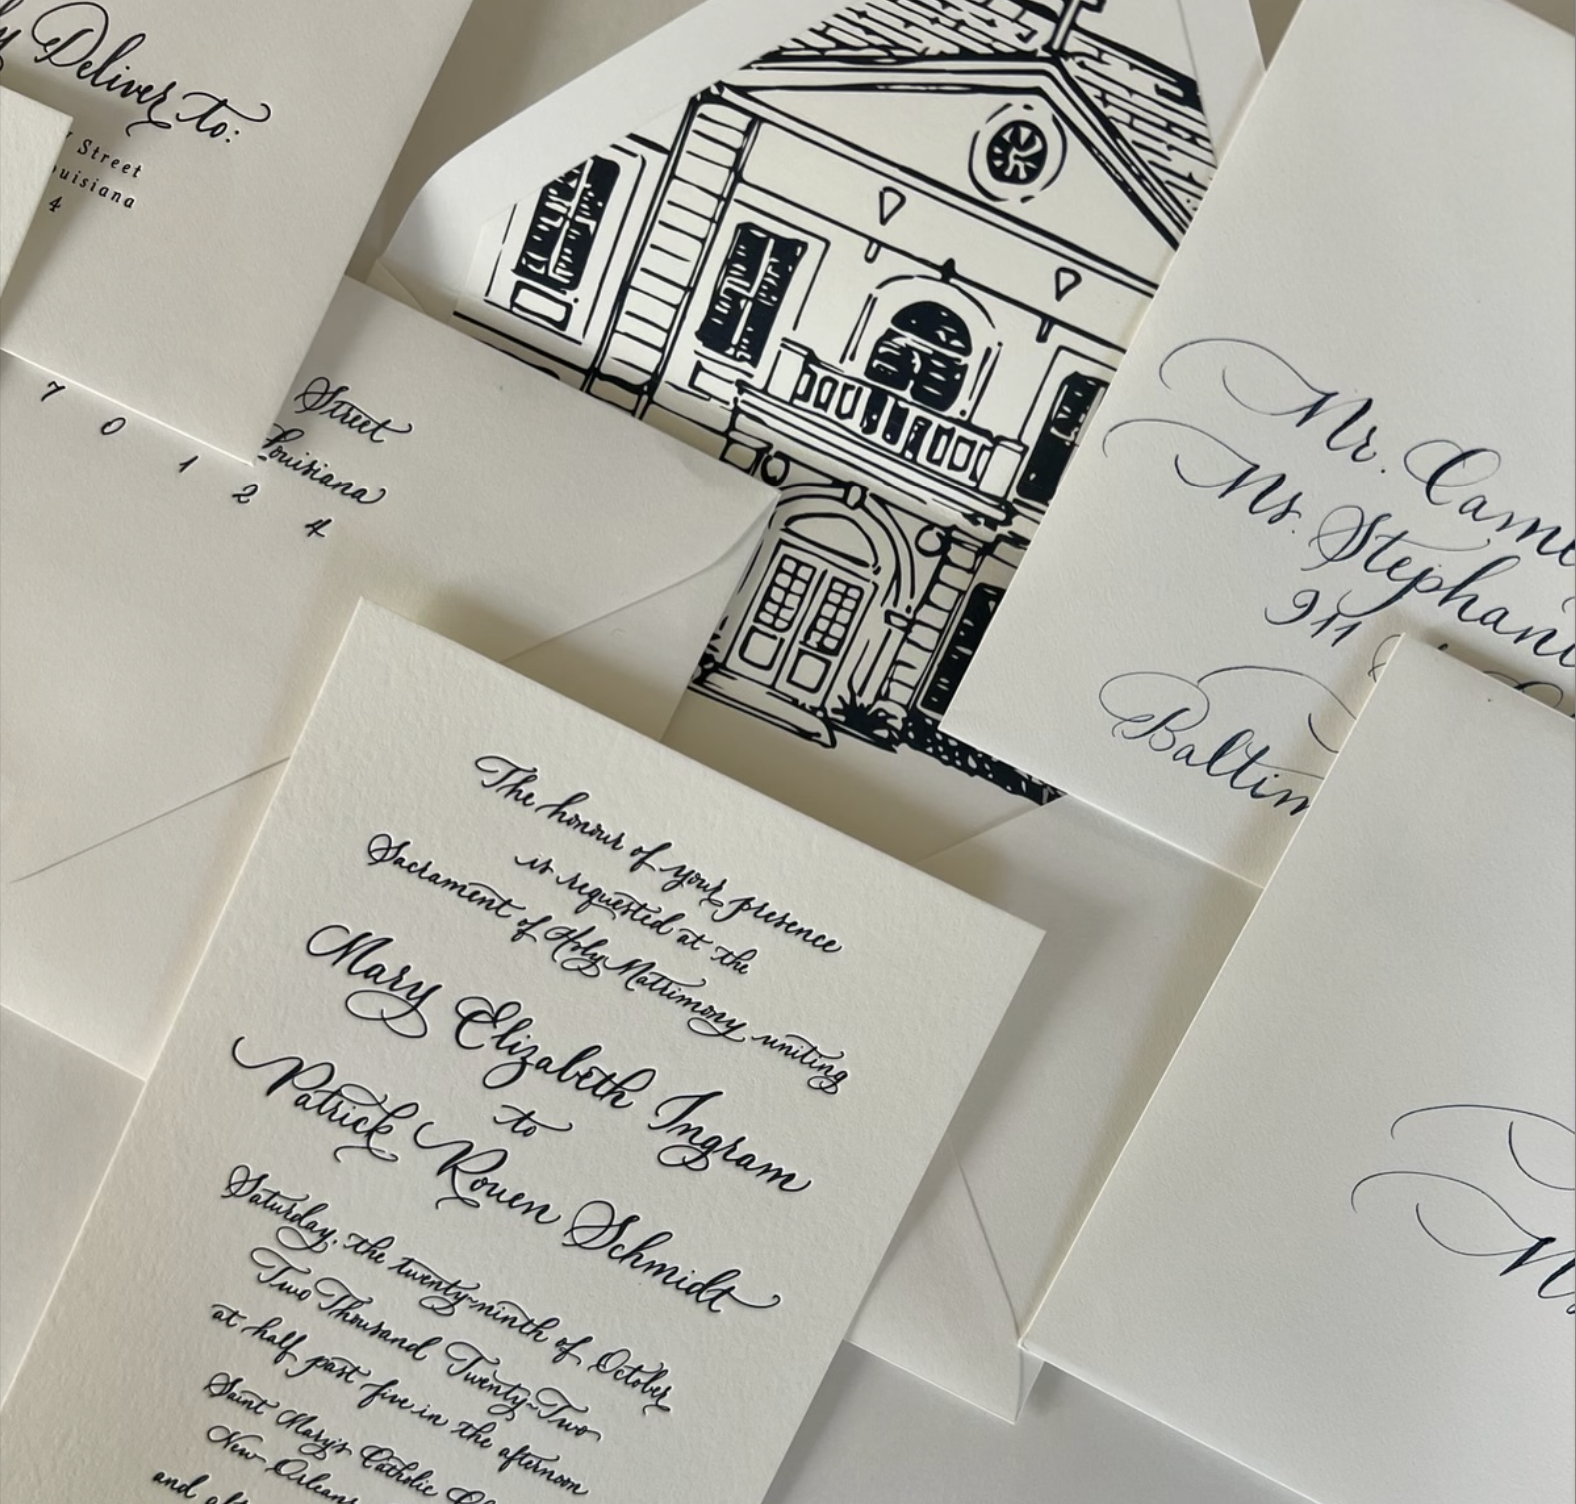 Deliver to:
Street
uisiana
4
7 0 1 2 4
Street
Louisiana
4
Mr. Came
Ms. Stephani
911
Baltim
The honour of your presence
is requested at the
Sacrament of Holy Matrimony uniting
Mary Elizabeth Ingram
to
Patrick Rouen Schmidt
Saturday, the twenty-ninth of October
Two Thousand Twenty-Two
at half past five in the afternoon
Saint Mary's Catholic
New Orleans
and
M